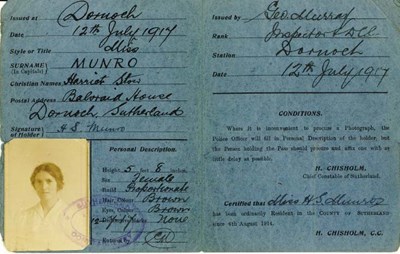 Issued at Dornoch
Date 12th July 1917
Style or Title Miss
SURNAME (In Capitals) MUNRO
Christian Names Harriet Stow
Postal Address Balvraid House
Dornoch Sutherland
Signature of Holder H S Munro
Personal Description.
Height 5 feet 8 inches
Sex Female
Build Proportionate
Hair, Colour Brown
Eyes, Colour Brown
None
Issued by Geo. Murray
Rank Inspector
Station Dornoch
Date 12th July 1917
CONDITIONS.
Where it is inconvenient to procure a Photograph, the
Police Officer will fill in Personal Description of the holder, but
the Person holding the Pass should procure and affix one with as
little delay as possible.
H. CHISHOLM,
Chief Constable of Sutherland.
Certified that Miss H. S. Munro
has been ordinarily Resident in the COUNTY OF SUTHERLAND
since 4th August 1914.
H. CHISHOLM, C.C.